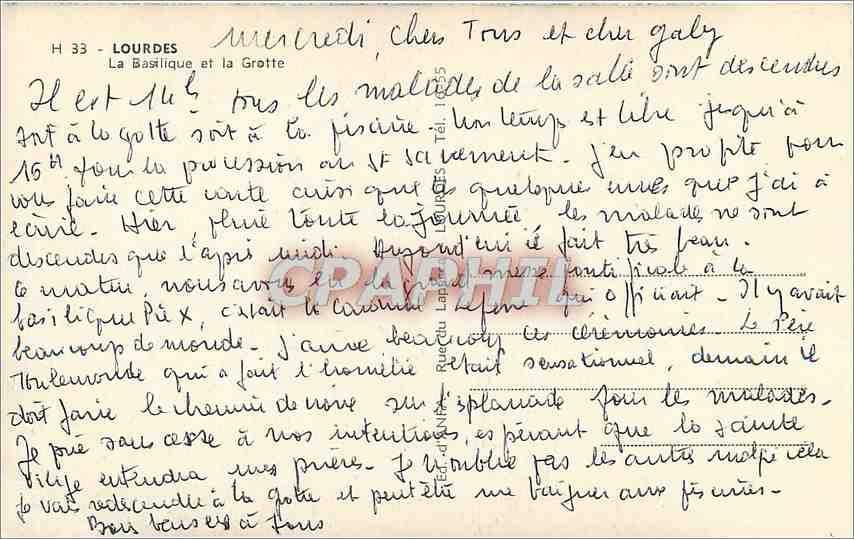 H 33 - LOURDES
La Basilique et la Grotte
mercredi, chers Tous et cher Gaby
Il est 14h tous les malades de la salle sont descendus
soit à la grotte soit à la piscine. Mon temps est libre jusqu'à
16h pour la procession au St Sacrement. J'en profite pour
vous faire cette carte ainsi que les quelques unes que j'ai à
écrire. Hier, pluie toute la journée, les malades ne sont
descendus que l'après midi. Aujourd'hui il fait très beau.
Ce matin, nous avons eu la grand messe pontificale à la
basilique Pie X, c'était le Cardinal Lefevre qui officiait. Il y avait
beaucoup de monde. J'aime beaucoup ces cérémonies. Le Père
Toulemonde qui a fait l'homélie était sensationnel, demain il
doit faire le chemin de croix sur l'esplanade pour les malades.
Je prie sans cesse à vos intentions, espérant que la sainte
vierge entendra mes prières. Je n'oublie pas les autres malgré cela
je vais redescendre à la grotte et peut être me baigner aux piscines.
Bons baisers à tous
Ed. d'ANNE, Rue du Lapacca LOURDES Tél. 10-55
CPAPHIL